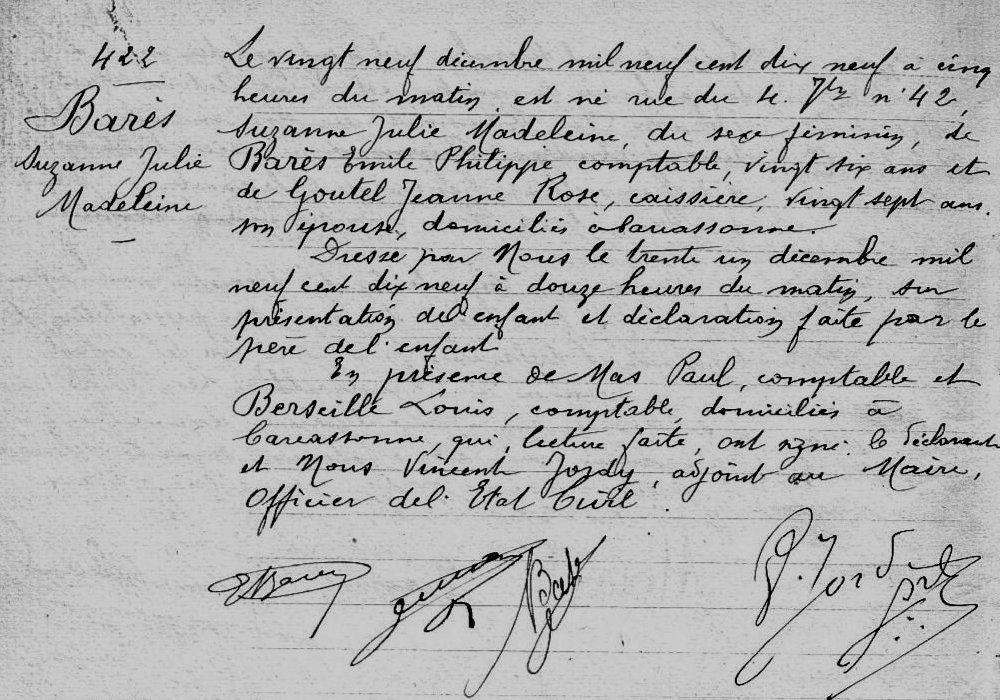 422
Barès
Suzanne Julie
Madeleine
Le vingt neuf décembre mil neuf cent dix neuf à cinq
heures du matin, est né rue du 4. 7bre n° 42,
Suzanne Julie Madeleine, du sexe féminin, de
Barès Emile Philippe comptable, vingt six ans et
de Goutel Jeanne Rose, caissière, vingt sept ans.
son épouse, domiciliés à Carcassonne.
Dressé par Nous le trente un décembre mil
neuf cent dix neuf à douze heures du matin, sur
présentation de l'enfant et déclaration faite par le
père de l'enfant
En présence de Mas Paul, comptable et
Berseille Louis, comptable, domiciliés à
Carcassonne, qui, lecture faite, ont signé le déclarant
et Nous Vincent Jordy, adjoint au Maire,
Officier de l'Etat Civil
EBarès
V. Jordy